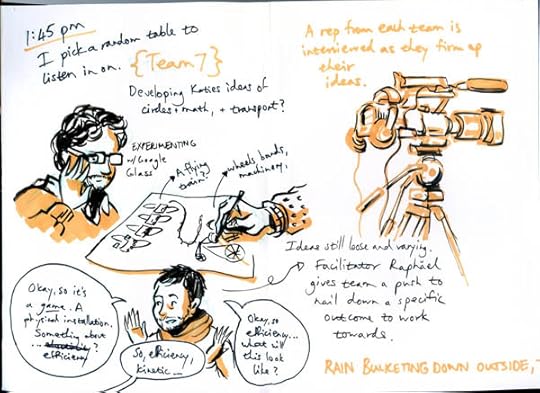 1:45 pm
I pick a random table to
listen in on. {Team 7}
Developing Katies ideas of
circles + math, + transport?
EXPERIMENTING
w/Google
Glass
A flying
train?
wheels, bards,
machinery.
A rep from each team is
interviewed as they firm up
their
ideas.
Ideas still loose and varying.
Facilitator Raphäel
gives team a push to
nail down a specific
outcome to work
towards.
Okay, so it's
a game. A
physical installation.
Something about
...
efficiency
So, efficiency,
kinetic...
Okay, so
efficiency...
what will
this look
like?
RAIN BUCKETING DOWN OUTSIDE,